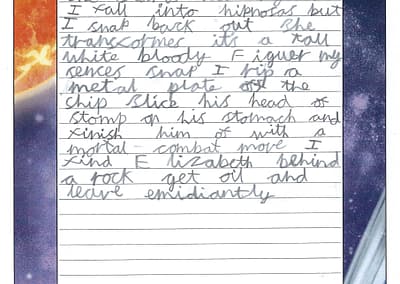 I fall into hipnosas but
I snap back out She
transcormes it's a tall
white bloody Figuer my
sences snap I rip a
metal plate off the
ship slice his head of
stomp on his stomach and
finish him of with a
mortal combat move I
find Elizabeth behind
a rock get oil and
leave emidiantly